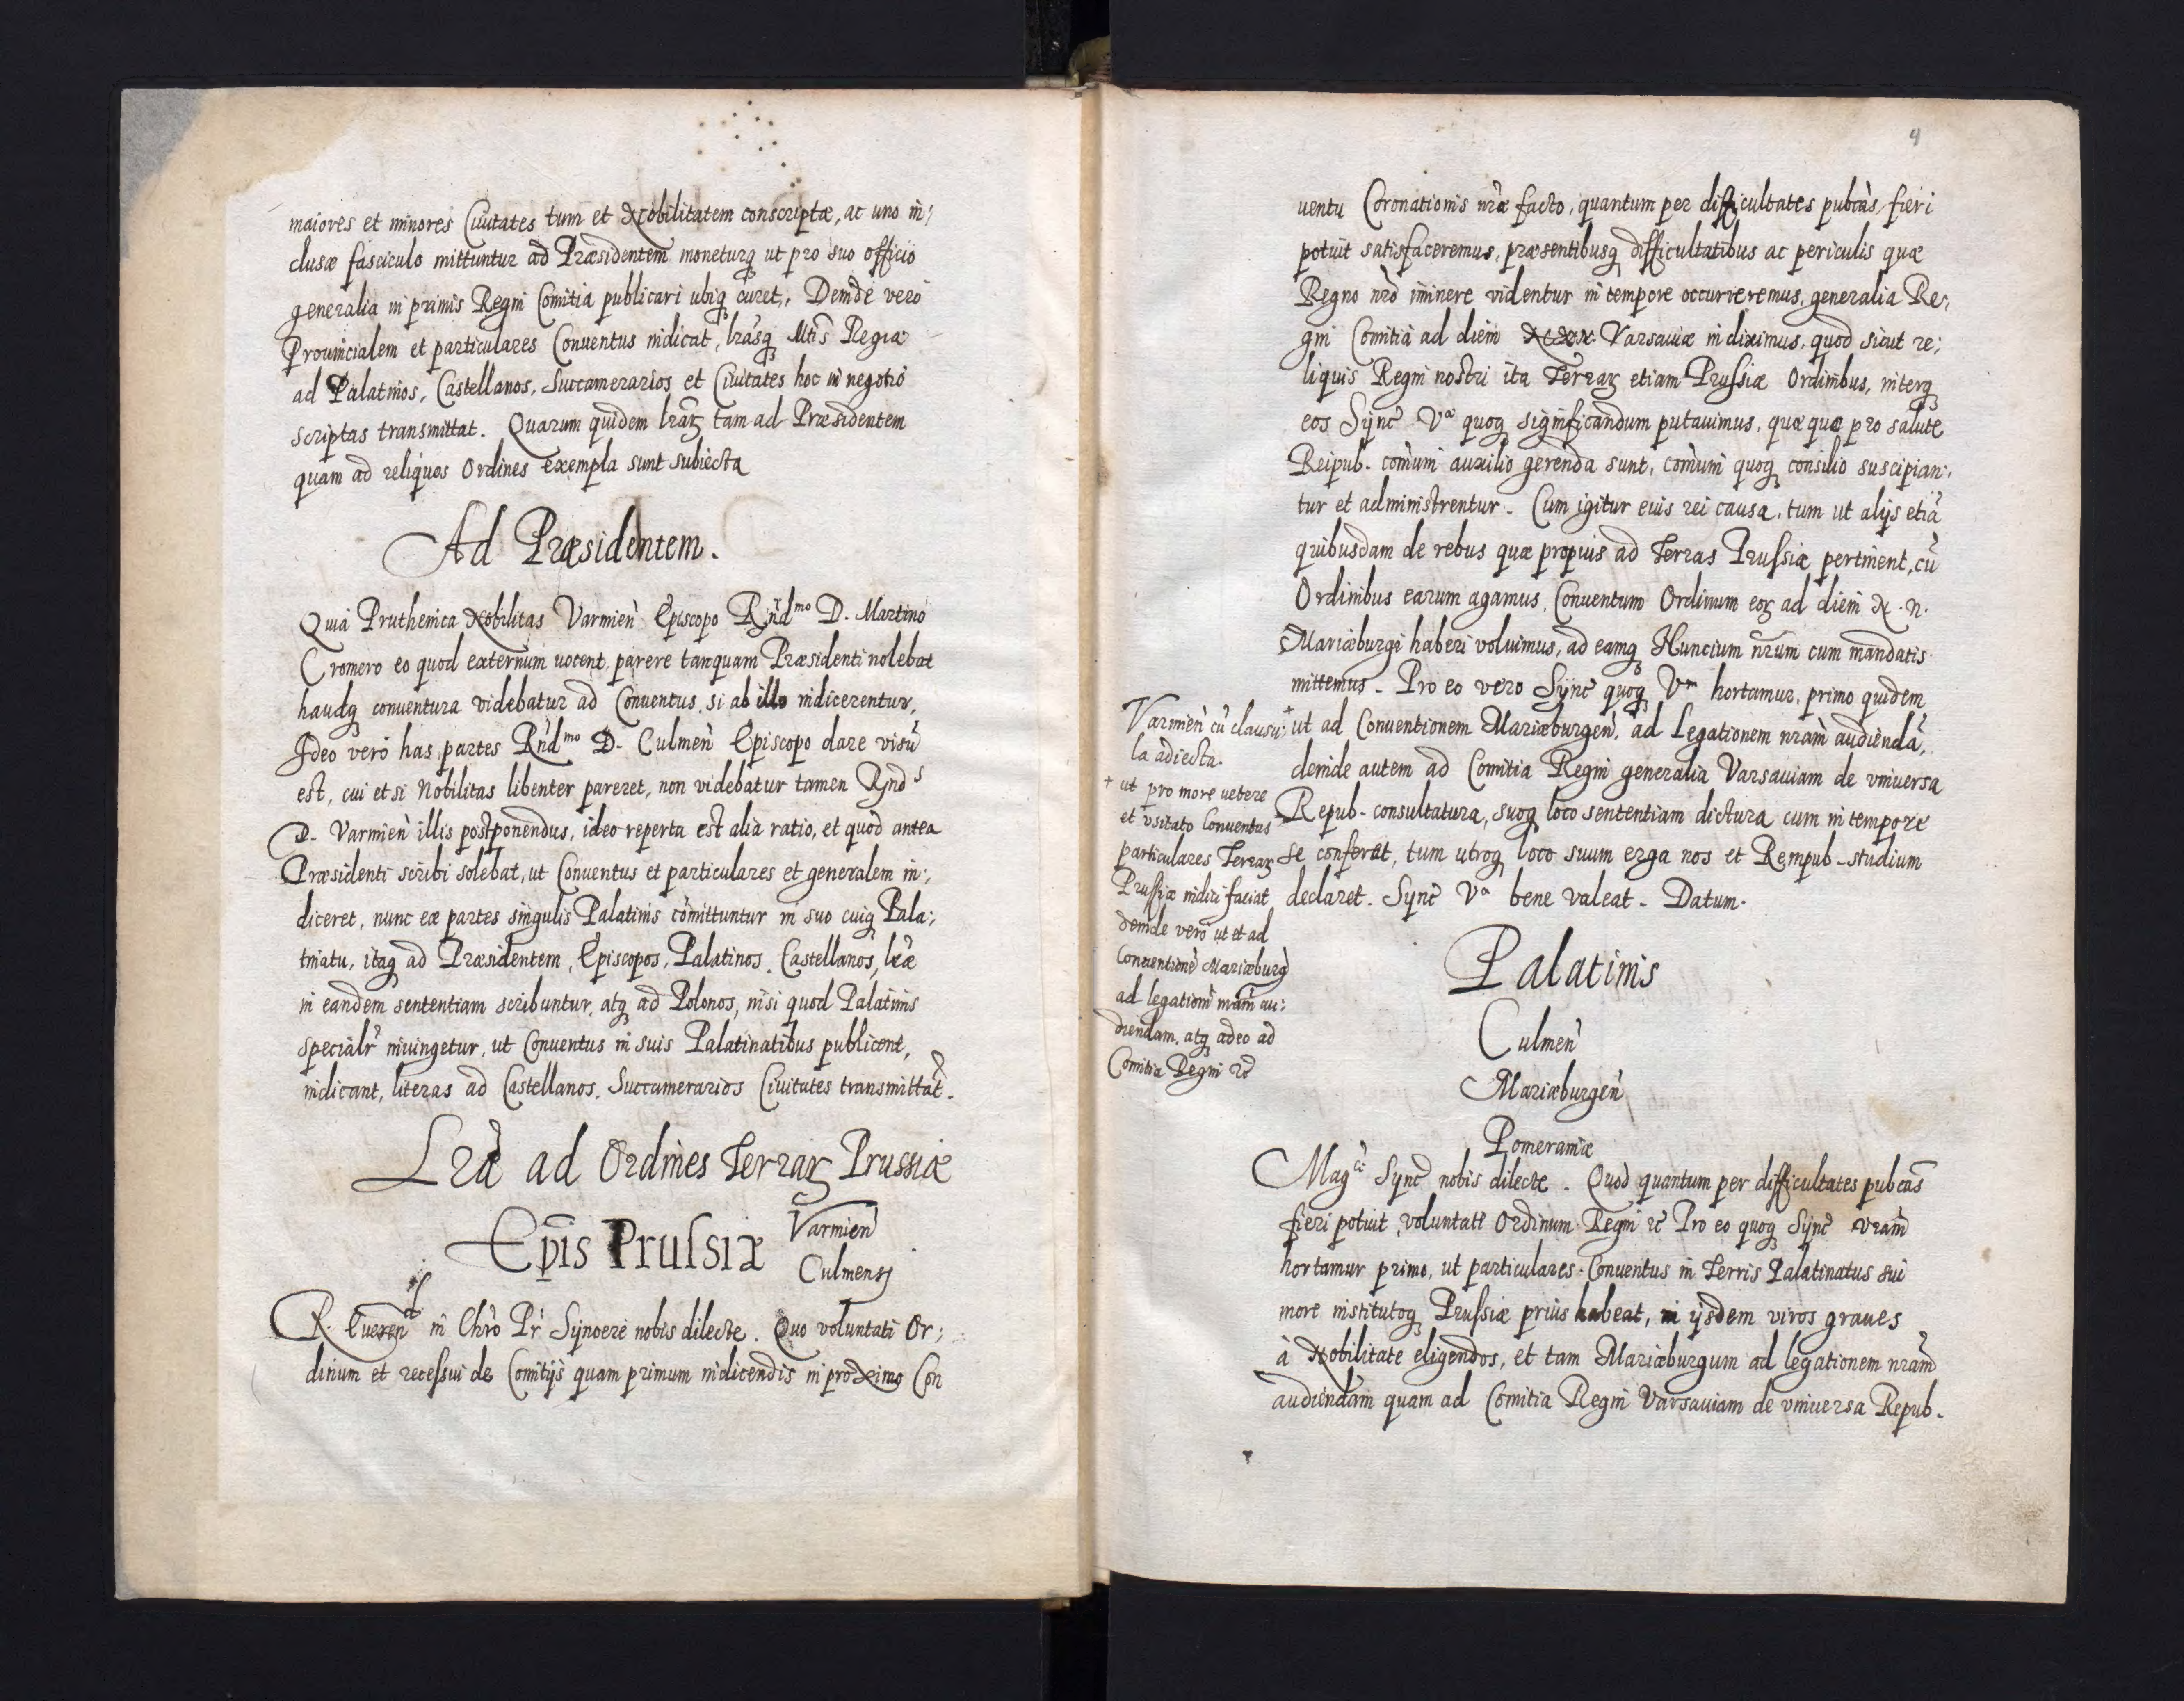 maiores et minores Ciuitates tum et Nobilitatem conscriptæ, ac uno in:
clusæ fasciculo mittuntur ad Præsidentem moneturq ut pro suo officio
generalia in primis Regni Comitia publicari ubiq curet, Deinde vero
Prouincialem et particulares Conuentus indicat, lrasq Mtis Regiæ
ad Palatinos, Castellanos, Succamerarios et Ciuitates hoc in negotio
scriptas transmittat. Quarum quidem lrarz tam ad Præsidentem
quam ad reliquos Ordines exempla sunt subiecta
Ad Præsidentem.
Quia Pruthenica Nobilitas Varmien Episcopo Rnd mo D. Martino
Cromero eo quod externum uocent, parere tanquam Præsidenti nolebat
haudq conuentura videbatur ad Conuentus, si ab illo indicerentur,
Ideo vero has partes Rnd mo D. Culmen Episcopo dare visu
est, cui et si Nobilitas libenter pareret, non videbatur tamen Rnd s
D. Varmien illis postponendus, ideo reperta est alia ratio, et quod antea
Præsidenti scribi solebat, ut Conuentus et particulares et generalem in:
diceret, nunc eæ partes singulis Palatinis comittuntur in suo cuiq Pala:
tinatu, itaq ad Præsidentem, Episcopos, Palatinos, Castellanos, lræ
in eandem sententiam scribuntur, atq ad Polonos, nisi quod Palatinis
specialr iniungetur, ut Conuentus in suis Palatinatibus publicent,
indicant, literas ad Castellanos, Succamerarios Ciuitates transmittat.
Lra ad Ordines Terrarz Prussiæ
Epis Prussiæ Varmien
Culmensj
R. Eueren in Chro Pr Synoere nobis dilecte. Quo voluntati Or:
dinum et recessui de Comitijs quam primum indicendis in proximo Con
4
uentu Coronationis nræ facto, quantum per difficultates pubcas fieri
potuit satisfaceremus, præsentibusq difficultatibus ac periculis quæ
Regno nro iminere videntur in tempore occurreremus, generalia Re:
gni Comitia ad diem Varsauiæ indiximus, quod sicut re:
liquis Regni nostri ita Terrarz etiam Prussiæ Ordinibus, interq
eos Sync Va quoq significandum putauimus, quæ quæ pro salute
Reipub. comuni auxilio gerenda sunt, comuni quoq consilio suscipian:
tur et administrentur. Cum igitur euis rei causa, tum ut alijs etia
quibusdam de rebus quæ propius ad Terras Prussiæ pertinent, cu
Ordinibus earum agamus, Conuentum Ordinum eorz ad diem N. N.
Mariæburgi haberi voluimus, ad eamq Nuncium nrum cum mandatis
mittemus. Pro eo vero Sync quoq Vm hortamur, primo quidem
+ ut ad Conuentionem Mariæburgen, ad Legationem nram audienda,
deinde autem ad Comitia Regni generalia Varsauiam de vniuersa
Repub. consultatura, suoq loco sententiam dictura cum in tempore
se conferat, tum utroq loco suum erga nos et Rempub. studium
declaret. Sync Va bene valeat. Datum.
Varmien cu clausu:
la adiecta.
+ ut pro more uetere
et vsitato Conuentus
particulares Terrarz
Prussiæ indici faciat
deinde vero ut et ad
Conuentione Mariæburg
ad legatione nram au:
diendam, atq adeo ad
Comitia Regni &c
Palatinis
Culmen
Mariæburgen
Pomeraniæ
Mag ce Sync nobis dilecte. Quod quantum per difficultates pubcas
fieri potuit, voluntati Ordinum Regni &c Pro eo quoq Sync vram
hortamur primo, ut particulares Conuentus in Terris Palatinatus sui
more institutoq Prussiæ prius habeat, in ijsdem viros graues
à Nobilitate eligendos, et tam Mariæburgum ad legationem nram
audiendam quam ad Comitia Regni Varsauiam de vniuersa Repub.